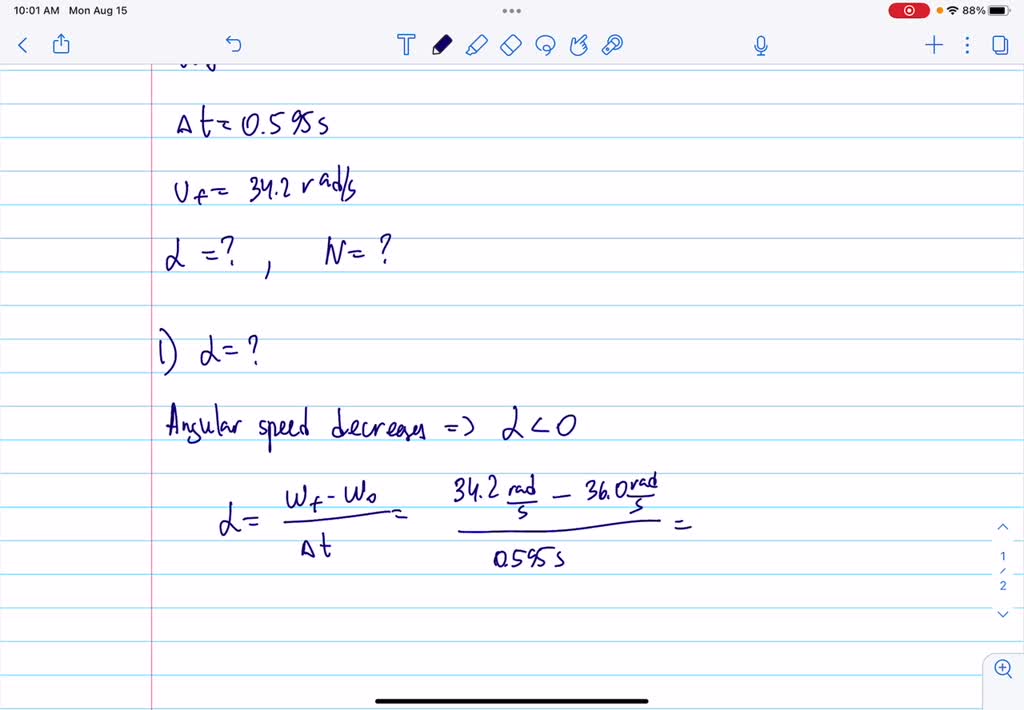 10:01 AM Mon Aug 15
88%
Δt = 0.595 s
υf = 34.2 rad/s
α = ? , N = ?
1) α = ?
Angular speed decreases => α < 0
α = (ωf - ω0) / Δt = (34.2 rad/s - 36.0 rad/s) / 0.595 s =
1
/
2